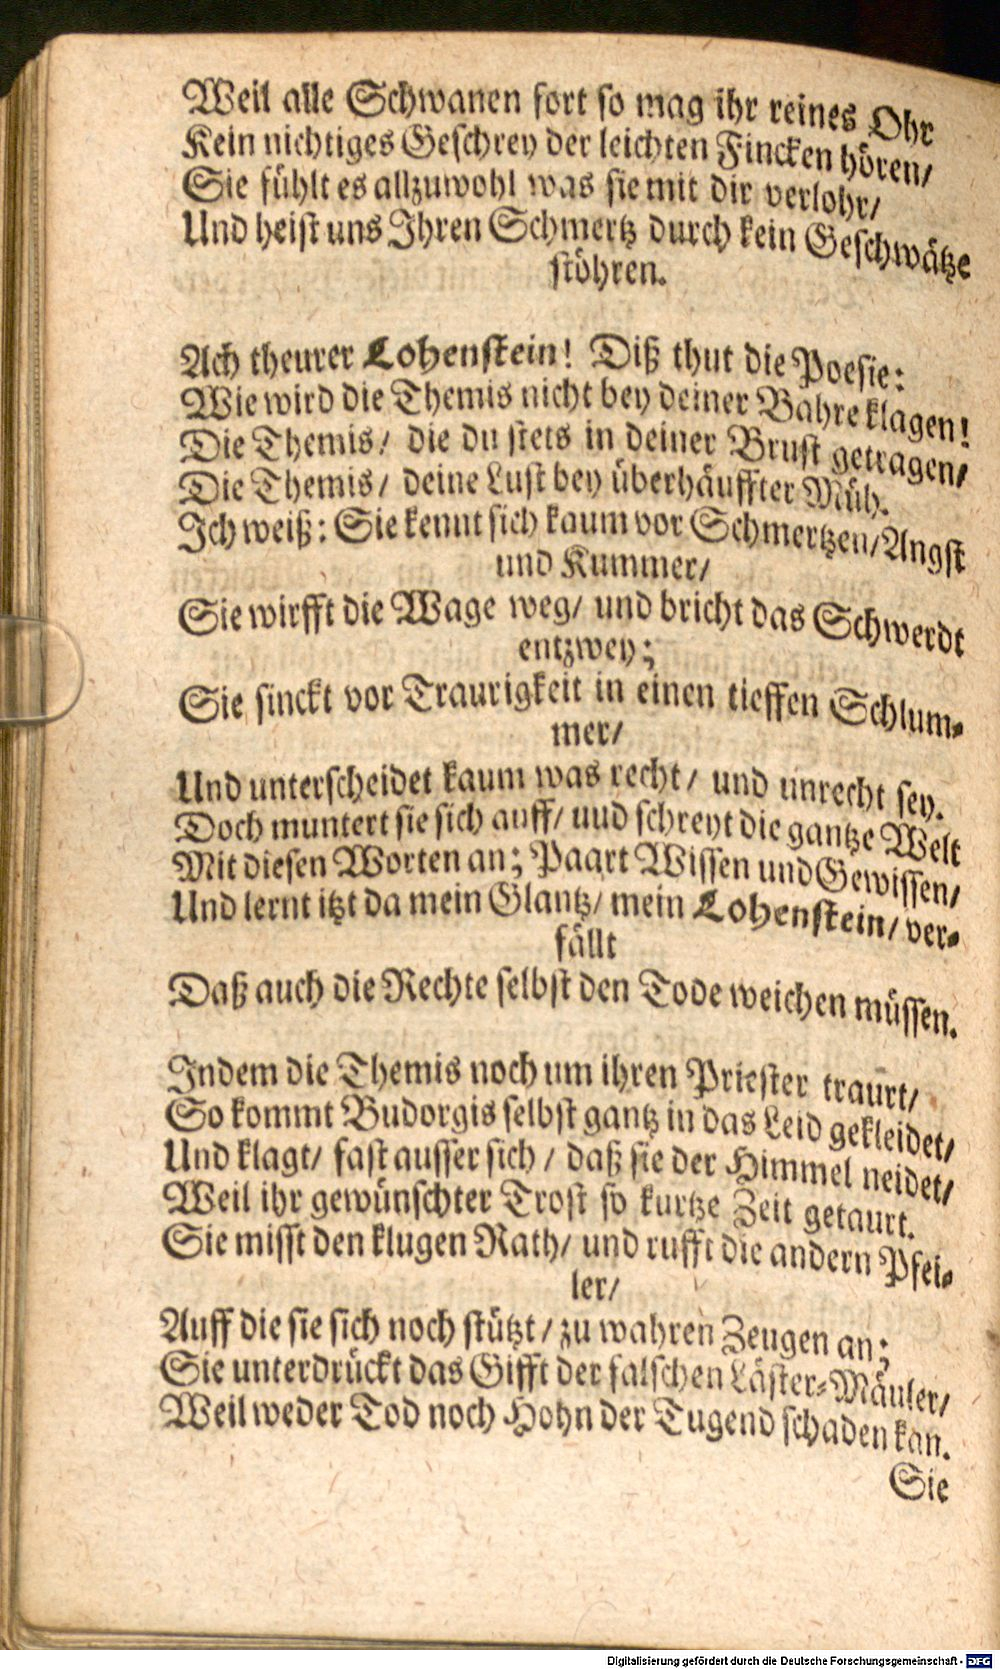 Weil alle Schwanen fort so mag ihr reines Ohr
Kein nichtiges Geschrey der leichten Fincken hören/
Sie fühlt es allzuwohl was sie mit dir verlohr/
Und heist uns Ihren Schmertz durch kein Geschwätze
stöhren.
Ach theurer Lohenstein! Diß thut die Poesie:
Wie wird die Themis nicht bey deiner Bahre klagen!
Die Themis/ die du stets in deiner Brust getragen/
Die Themis/ deine Lust bey überhäuffter Müh.
Ich weiß: Sie kennt sich kaum vor Schmertzen/ Angst
und Kummer/
Sie wirfft die Wage weg/ und bricht das Schwerdt
entzwey;
Sie sinckt vor Traurigkeit in einen tieffen Schlum-
mer/
Und unterscheidet kaum was recht/ und unrecht sey.
Doch muntert sie sich auff/ uud schreyt die gantze Welt
Mit diesen Worten an; Paart Wissen und Gewissen/
Und lernt itzt da mein Glantz/ mein Lohenstein/ ver-
fällt
Daß auch die Rechte selbst den Tode weichen müssen.
Indem die Themis noch um ihren Priester traurt/
So kommt Budorgis selbst gantz in das Leid gekleidet/
Und klagt/ fast ausser sich / daß sie der Himmel neidet/
Weil ihr gewünschter Trost so kurtze Zeit getaurt.
Sie misst den klugen Rath/ und rufft die andern Pfei-
ler/
Auff die sie sich noch stützt/ zu wahren Zeugen an;
Sie unterdrückt das Gifft der falschen Läster-Mäuler/
Weil weder Tod noch Hohn der Tugend schaden kan.
Sie
Digitalisierung gefördert durch die Deutsche Forschungsgemeinschaft - DFG